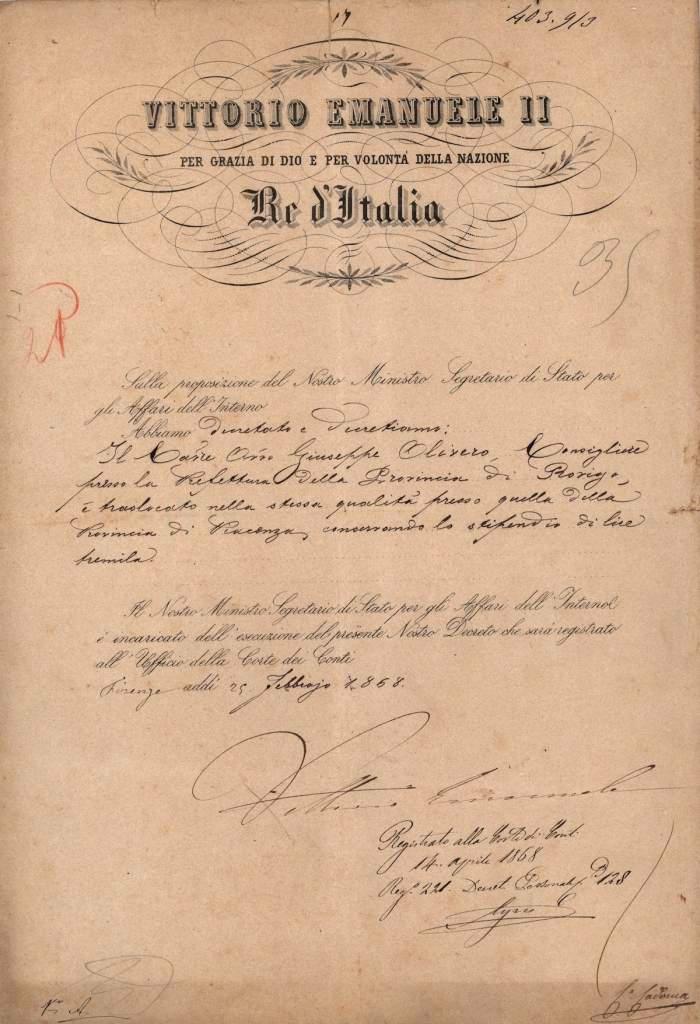 17
403.9/3
VITTORIO EMANUELE II
PER GRAZIA DI DIO E PER VOLONTÀ DELLA NAZIONE
Re d'Italia
Sulla proposizione del Nostro Ministro Segretario di Stato per
gli Affari dell'Interno
Abbiamo decretato e decretiamo:
Il Giuseppe Olivero, Consigliere
presso la Prefettura della Provincia di Rovigo,
è traslocato nella stessa qualità presso quella della
Provincia di Piacenza, conservando lo stipendio di lire
tremila.
Il Nostro Ministro Segretario di Stato per gli Affari dell'Interno
è incaricato dell'esecuzione del presente Nostro Decreto che sarà registrato
all'Ufficio della Corte dei Conti
Firenze addì 25 Febbrajo 1868.
Vittorio Emanuele
Registrato alla Corte dei Conti
14 aprile 1868
Reg.º 221 Decreti Personali 128
Cadorna